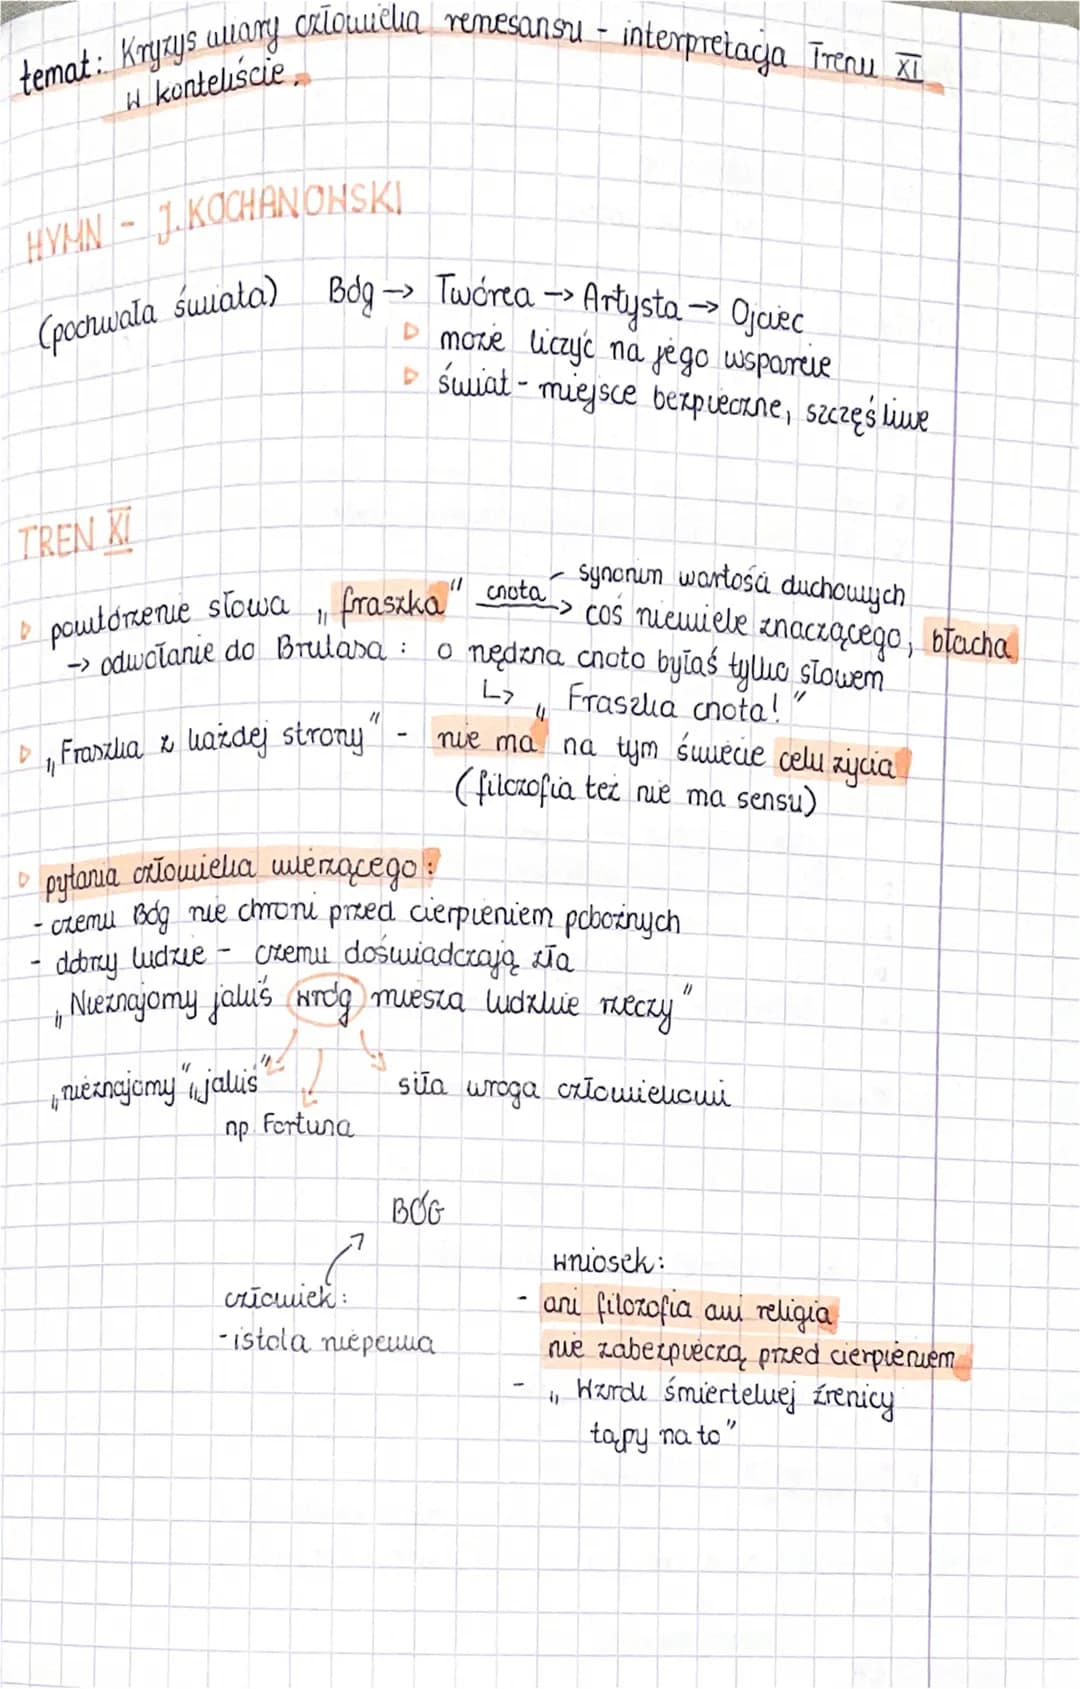 temat: Kryzys wiary człowieka renesansu - interpretacja Trenu XI
w kontekście.
HYMN - J. KOCHANOWSKI
(pochwała świata) Bóg → Twórca → Artysta → Ojciec
▷ może liczyć na jego wsparcie
▷ świat - miejsce bezpieczne, szczęśliwe
TREN XI
synonim wartości duchowych
▷ powtórzenie słowa „fraszka" cnota → coś niewiele znaczącego, błacha
→ odwołanie do Brutusa : o nędzna cnoto byłaś tylko słowem
↳ „Fraszka cnota!"
▷ „Fraszka z każdej strony" - nie ma na tym świecie celu życia
(filozofia też nie ma sensu)
▷ pytania człowieka wierzącego:
- czemu Bóg nie chroni przed cierpieniem pobożnych
- dobrzy ludzie - czemu doświadczają zła
„Nieznajomy jakiś wróg miesza ludzkie rzeczy"
„nieznajomy" „jakiś" siła wroga człowiekowi
np. Fortuna
BÓG
wniosek:
człowiek: - ani filozofia ani religia
- istota niepewna nie zabezpieczą przed cierpieniem
- „Wzrok śmiertelnej źrenicy
tąpy na to"